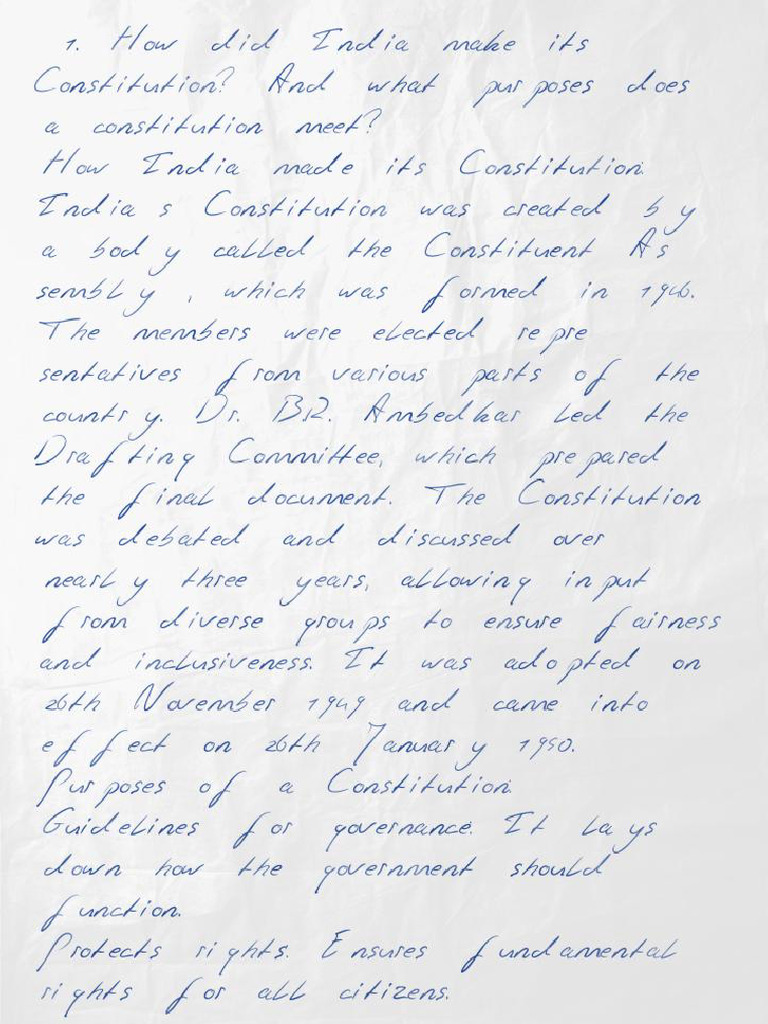 1. How did India make its
Constitution? And what purposes does
a constitution meet?
How India made its Constitution.
India s Constitution was created by
a body called the Constituent As
sembly, which was formed in 1946.
The members were elected repre
sentatives from various parts of the
country. Dr. B.R. Ambedkar led the
Drafting Committee, which prepared
the final document. The Constitution
was debated and discussed over
nearly three years, allowing input
from diverse groups to ensure fairness
and inclusiveness. It was adopted on
26th November 1949 and came into
effect on 26th January 1950.
Purposes of a Constitution.
Guidelines for governance. It lays
down how the government should
function.
Protects rights. Ensures fundamental
rights for all citizens.